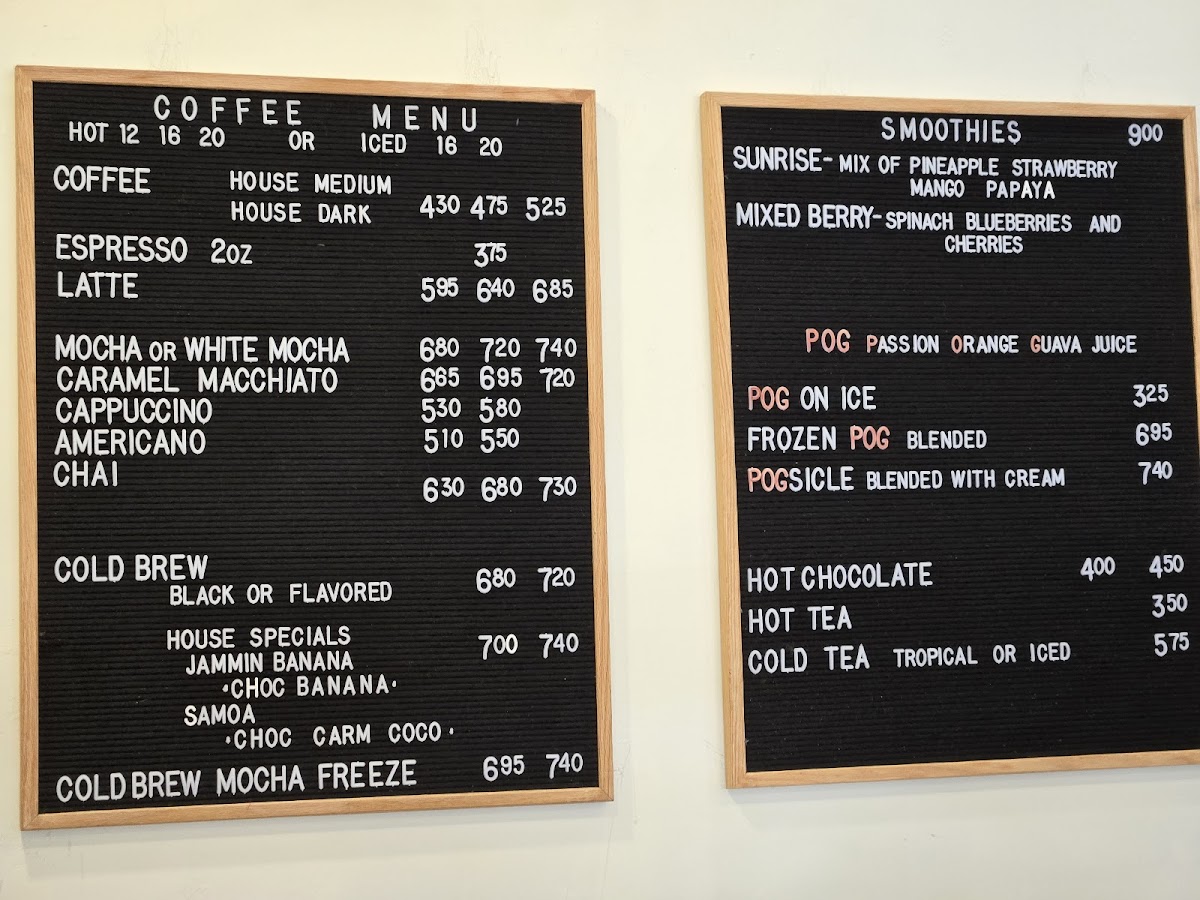 COFFEE MENU
HOT 12 16 20 OR ICED 16 20
COFFEE HOUSE MEDIUM
HOUSE DARK 430 475 525
ESPRESSO 2OZ 375
LATTE 595 640 685
MOCHA OR WHITE MOCHA 680 720 740
CARAMEL MACCHIATO 685 695 720
CAPPUCCINO 530 580
AMERICANO 510 550
CHAI 630 680 730
COLD BREW 680 720
BLACK OR FLAVORED
HOUSE SPECIALS 700 740
JAMMIN BANANA
•CHOC BANANA•
SAMOA
•CHOC CARM COCO•
COLD BREW MOCHA FREEZE 695 740
SMOOTHIES 900
SUNRISE- MIX OF PINEAPPLE STRAWBERRY
MANGO PAPAYA
MIXED BERRY- SPINACH BLUEBERRIES AND
CHERRIES
POG PASSION ORANGE GUAVA JUICE
POG ON ICE 325
FROZEN POG BLENDED 695
POGSICLE BLENDED WITH CREAM 740
HOT CHOCOLATE 400 450
HOT TEA 350
COLD TEA TROPICAL OR ICED 575